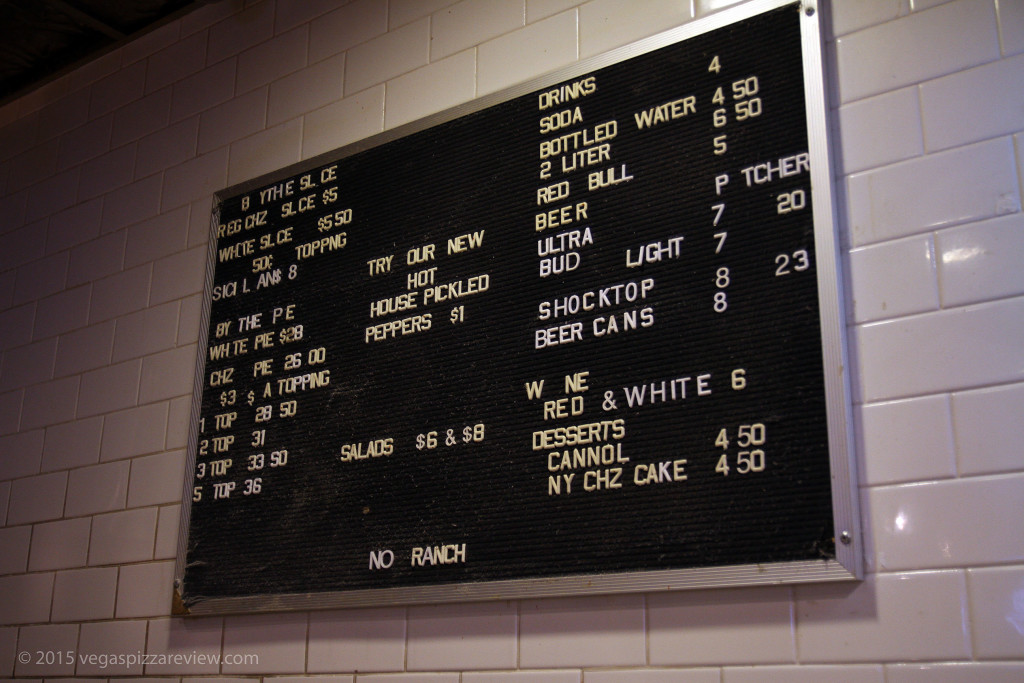 B YTHE SL CE
REG CHZ SL CE $5
WHITE SL CE $5 50
50¢ TOPPNG
SICI L AN$ 8
BY THE P E
WH TE PIE $28
CHZ PIE 26 00
$3 $ A TOPPING
1 TOP 28 50
2 TOP 31
3 TOP 33 50
5 TOP 36
TRY OUR NEW
HOT
HOUSE PICKLED
PEPPERS $1
SALADS $6 & $8
NO RANCH
DRINKS
SODA 4
BOTTLED WATER 4 50
2 LITER 6 50
RED BULL 5
BEER P TCHER
ULTRA 7 20
BUD LIGHT 7
SHOCKTOP 8 23
BEER CANS 8
W NE
RED & WHITE 6
DESSERTS
CANNOL 4 50
NY CHZ CAKE 4 50
© 2015 vegaspizzareview.com